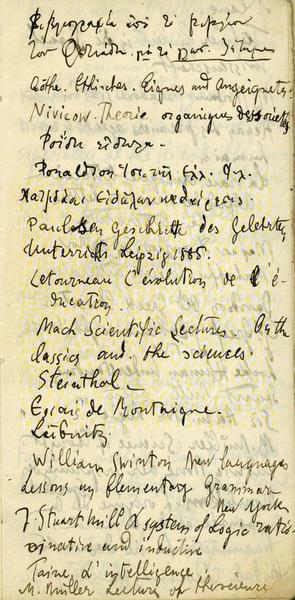 Βιβλιογραφία ἀπὸ τὸ βιβλίον
τοῦ
Göthe. Ethisches. Eignes und Angeeignetes.
Novicow. Theorie organique des sociétés
Φοῖβη
Δοναλδσον Ἱστ. τῆς Ἑλλ. Φιλ.
Χατζιδάκι Εἰδώλων καθαίρεσις.
Paulsen Geschichte des Gelehrten
Unterrichts Leipzig 1885.
Letourneau L'évolution de l'é-
ducation.
Mach Scientific Lectures. On the
classics and the sciences.
Steinthal
Essais de Montaigne.
Leibnitz
William Swinton New languages
lessons an Elementary Grammar
New York
J. Stuart Mill A system of Logic ratio-
cinative and inductive
Taine, L'intelligence
M. Müller Lectures of the science